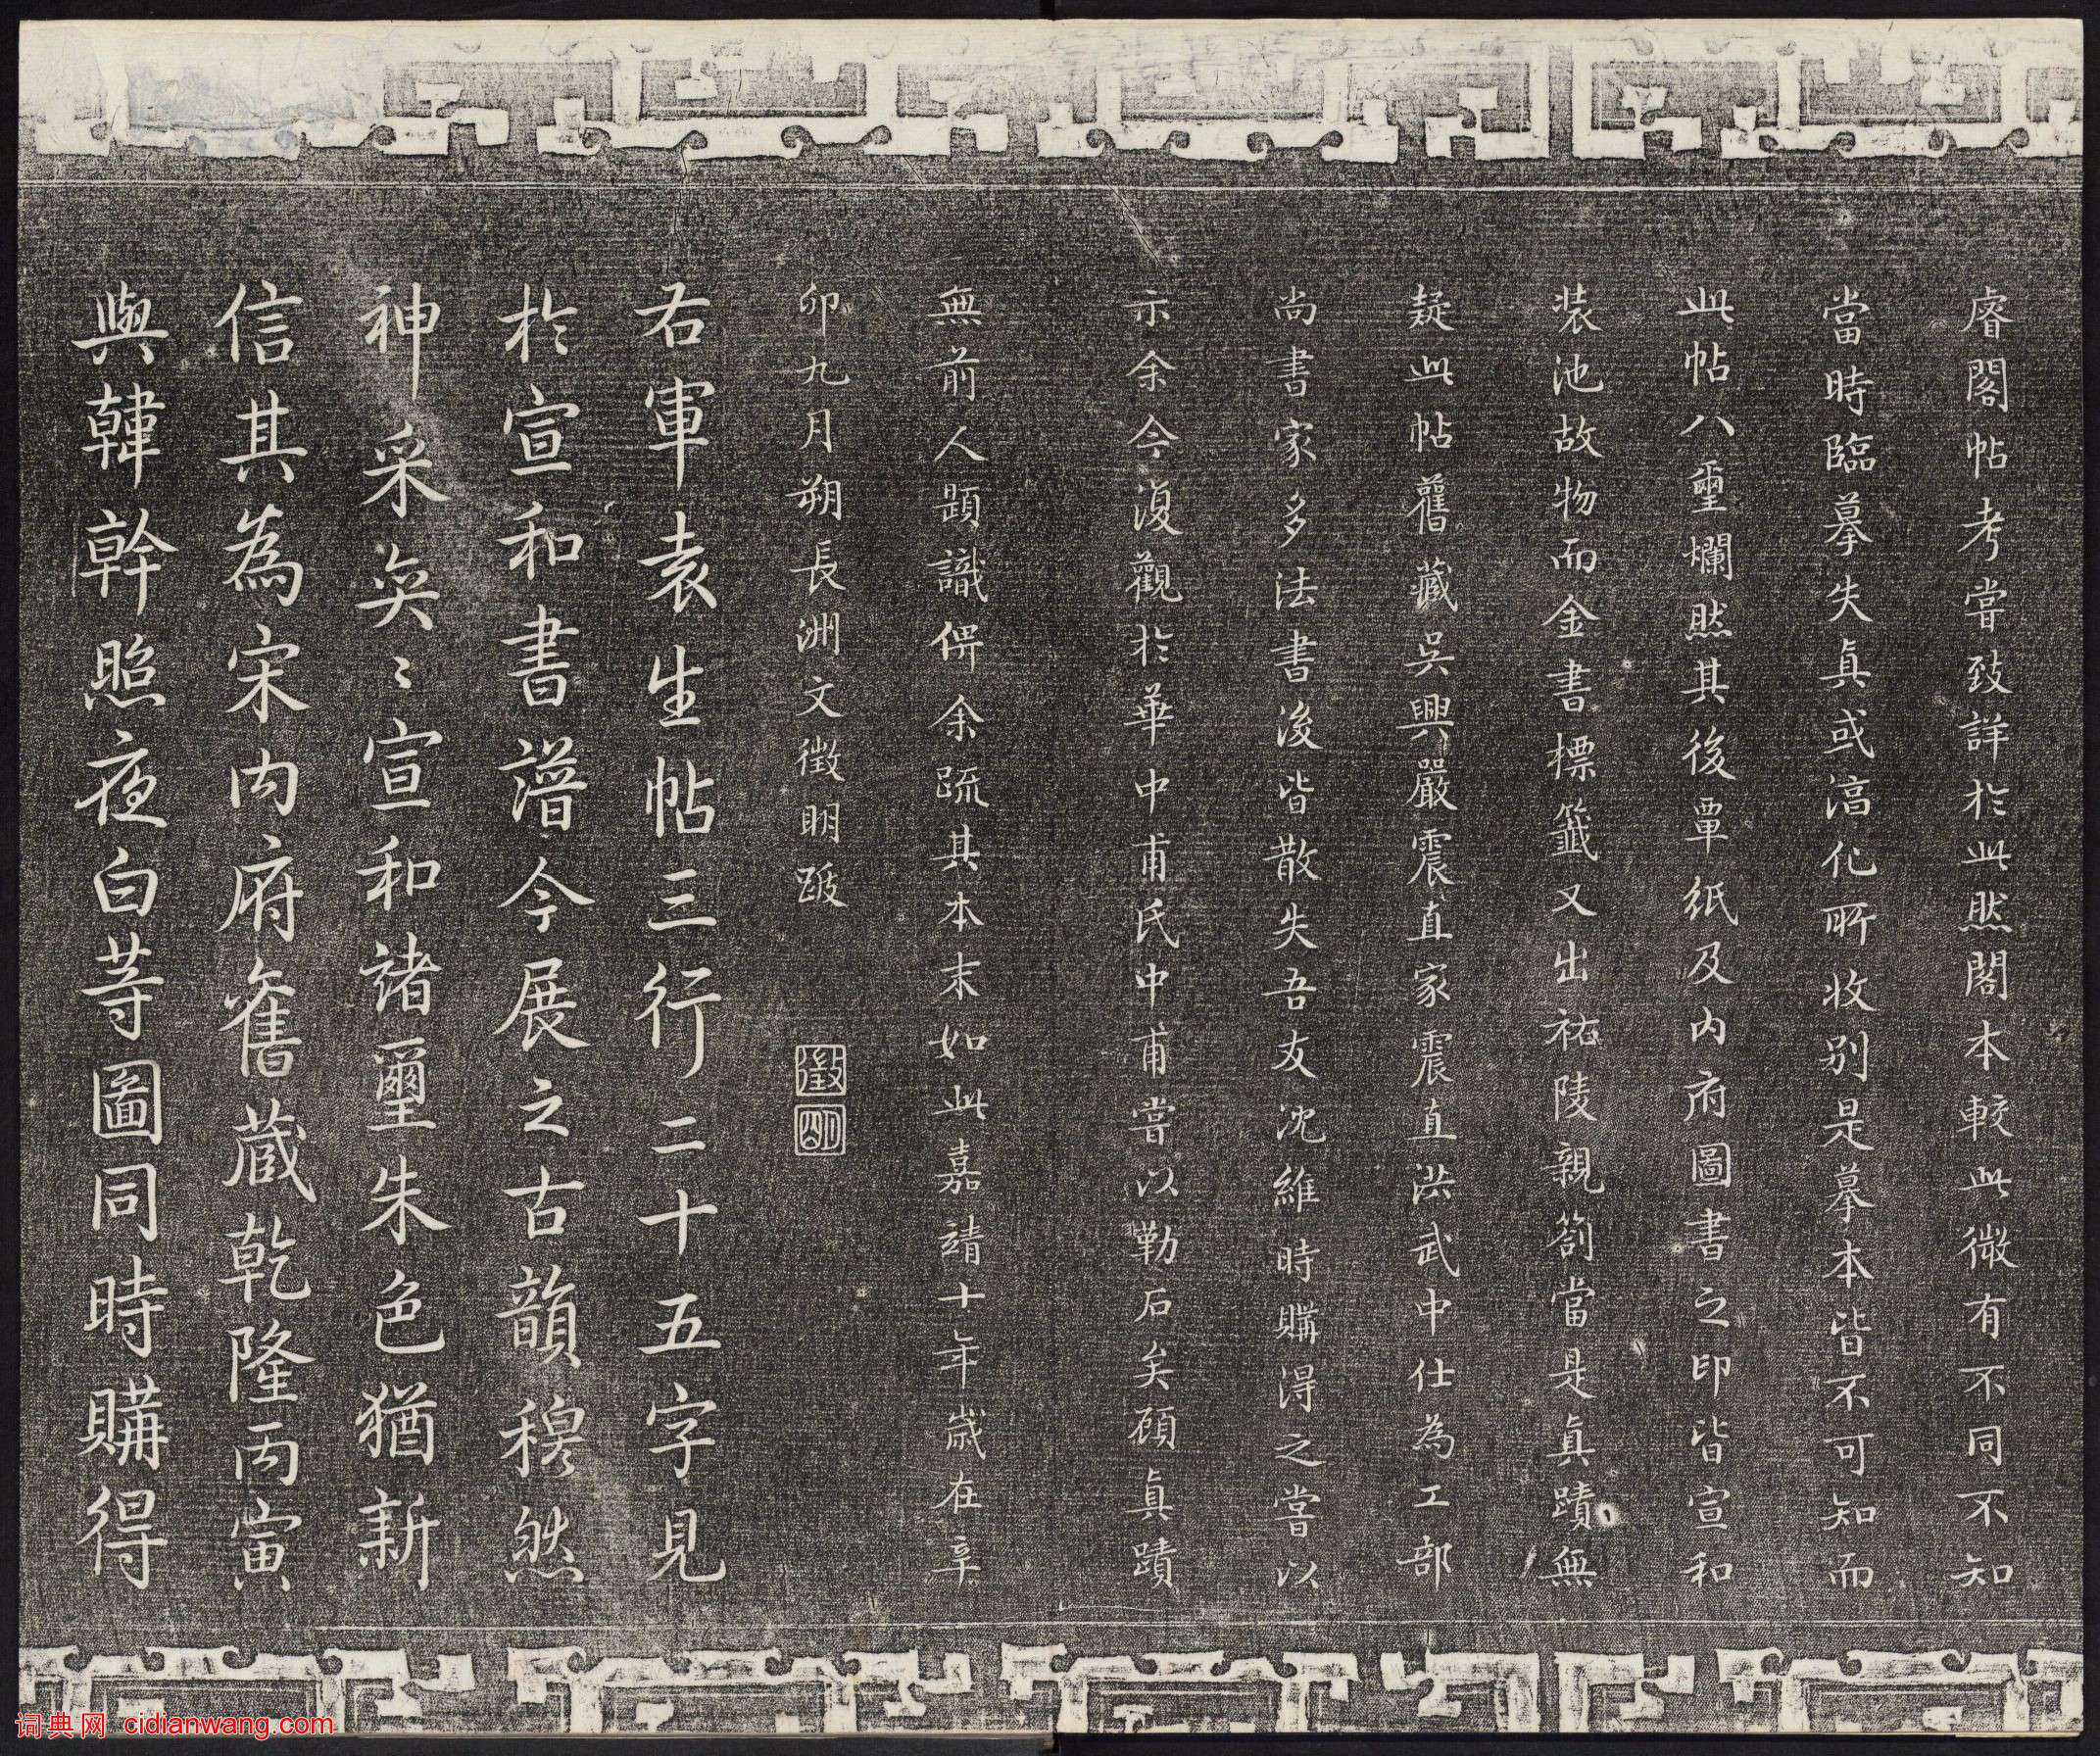 睿閣帖考嘗致詳於此然閣本較此微有不同不知
當時臨摹失真或淳化所收別是摹本皆不可知而
此帖八璽爛然其後覃紙及內府圖書之印皆宣和
裝池故物而金書標籤又出祐陵親劄當是真蹟無
疑此帖舊藏吳興嚴震直家震直洪武中仕為工部
尚書家多法書後皆散失吾友沈維時購得之嘗以
示余今復觀於華中甫氏中甫嘗以勒石矣顧真蹟
無前人題識俾余疏其本末如此嘉靖十年歲在辛
卯九月朔長洲文徵明跋
徵
明
右軍袁生帖三行二十五字見
於宣和書譜今展之古韻穆然
神采奕〻宣和諸璽朱色猶新
信其為宋內府舊藏乾隆丙寅
與韓幹照夜白等圖同時購得
词典网 cidianwang.com